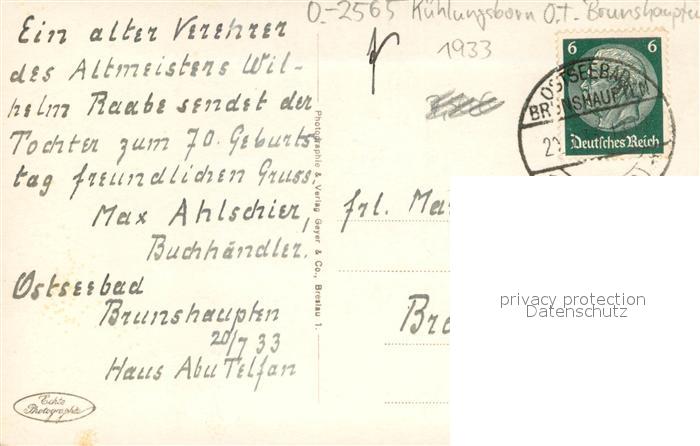 O.-2565 Kühlungsborn O.T. Brunshaupten
1933
Ein alter Verehrer
des Altmeisters Wil-
helm Raabe sendet der
Tochter zum 70. Geburts-
tag freundlichen Gruss.
Max Ahlschier,
Buchhändler.
Ostseebad
Brunshaupten
20/7 33
Haus Abu Telfan
Echte
Photographie
Photographie & Verlag Geyer & Co., Breslau 1.
6 6
Deutsches Reich
OSTSEEBAD
BRUNSHAUPTEN
Frl. Mar
Br
privacy protection
Datenschutz